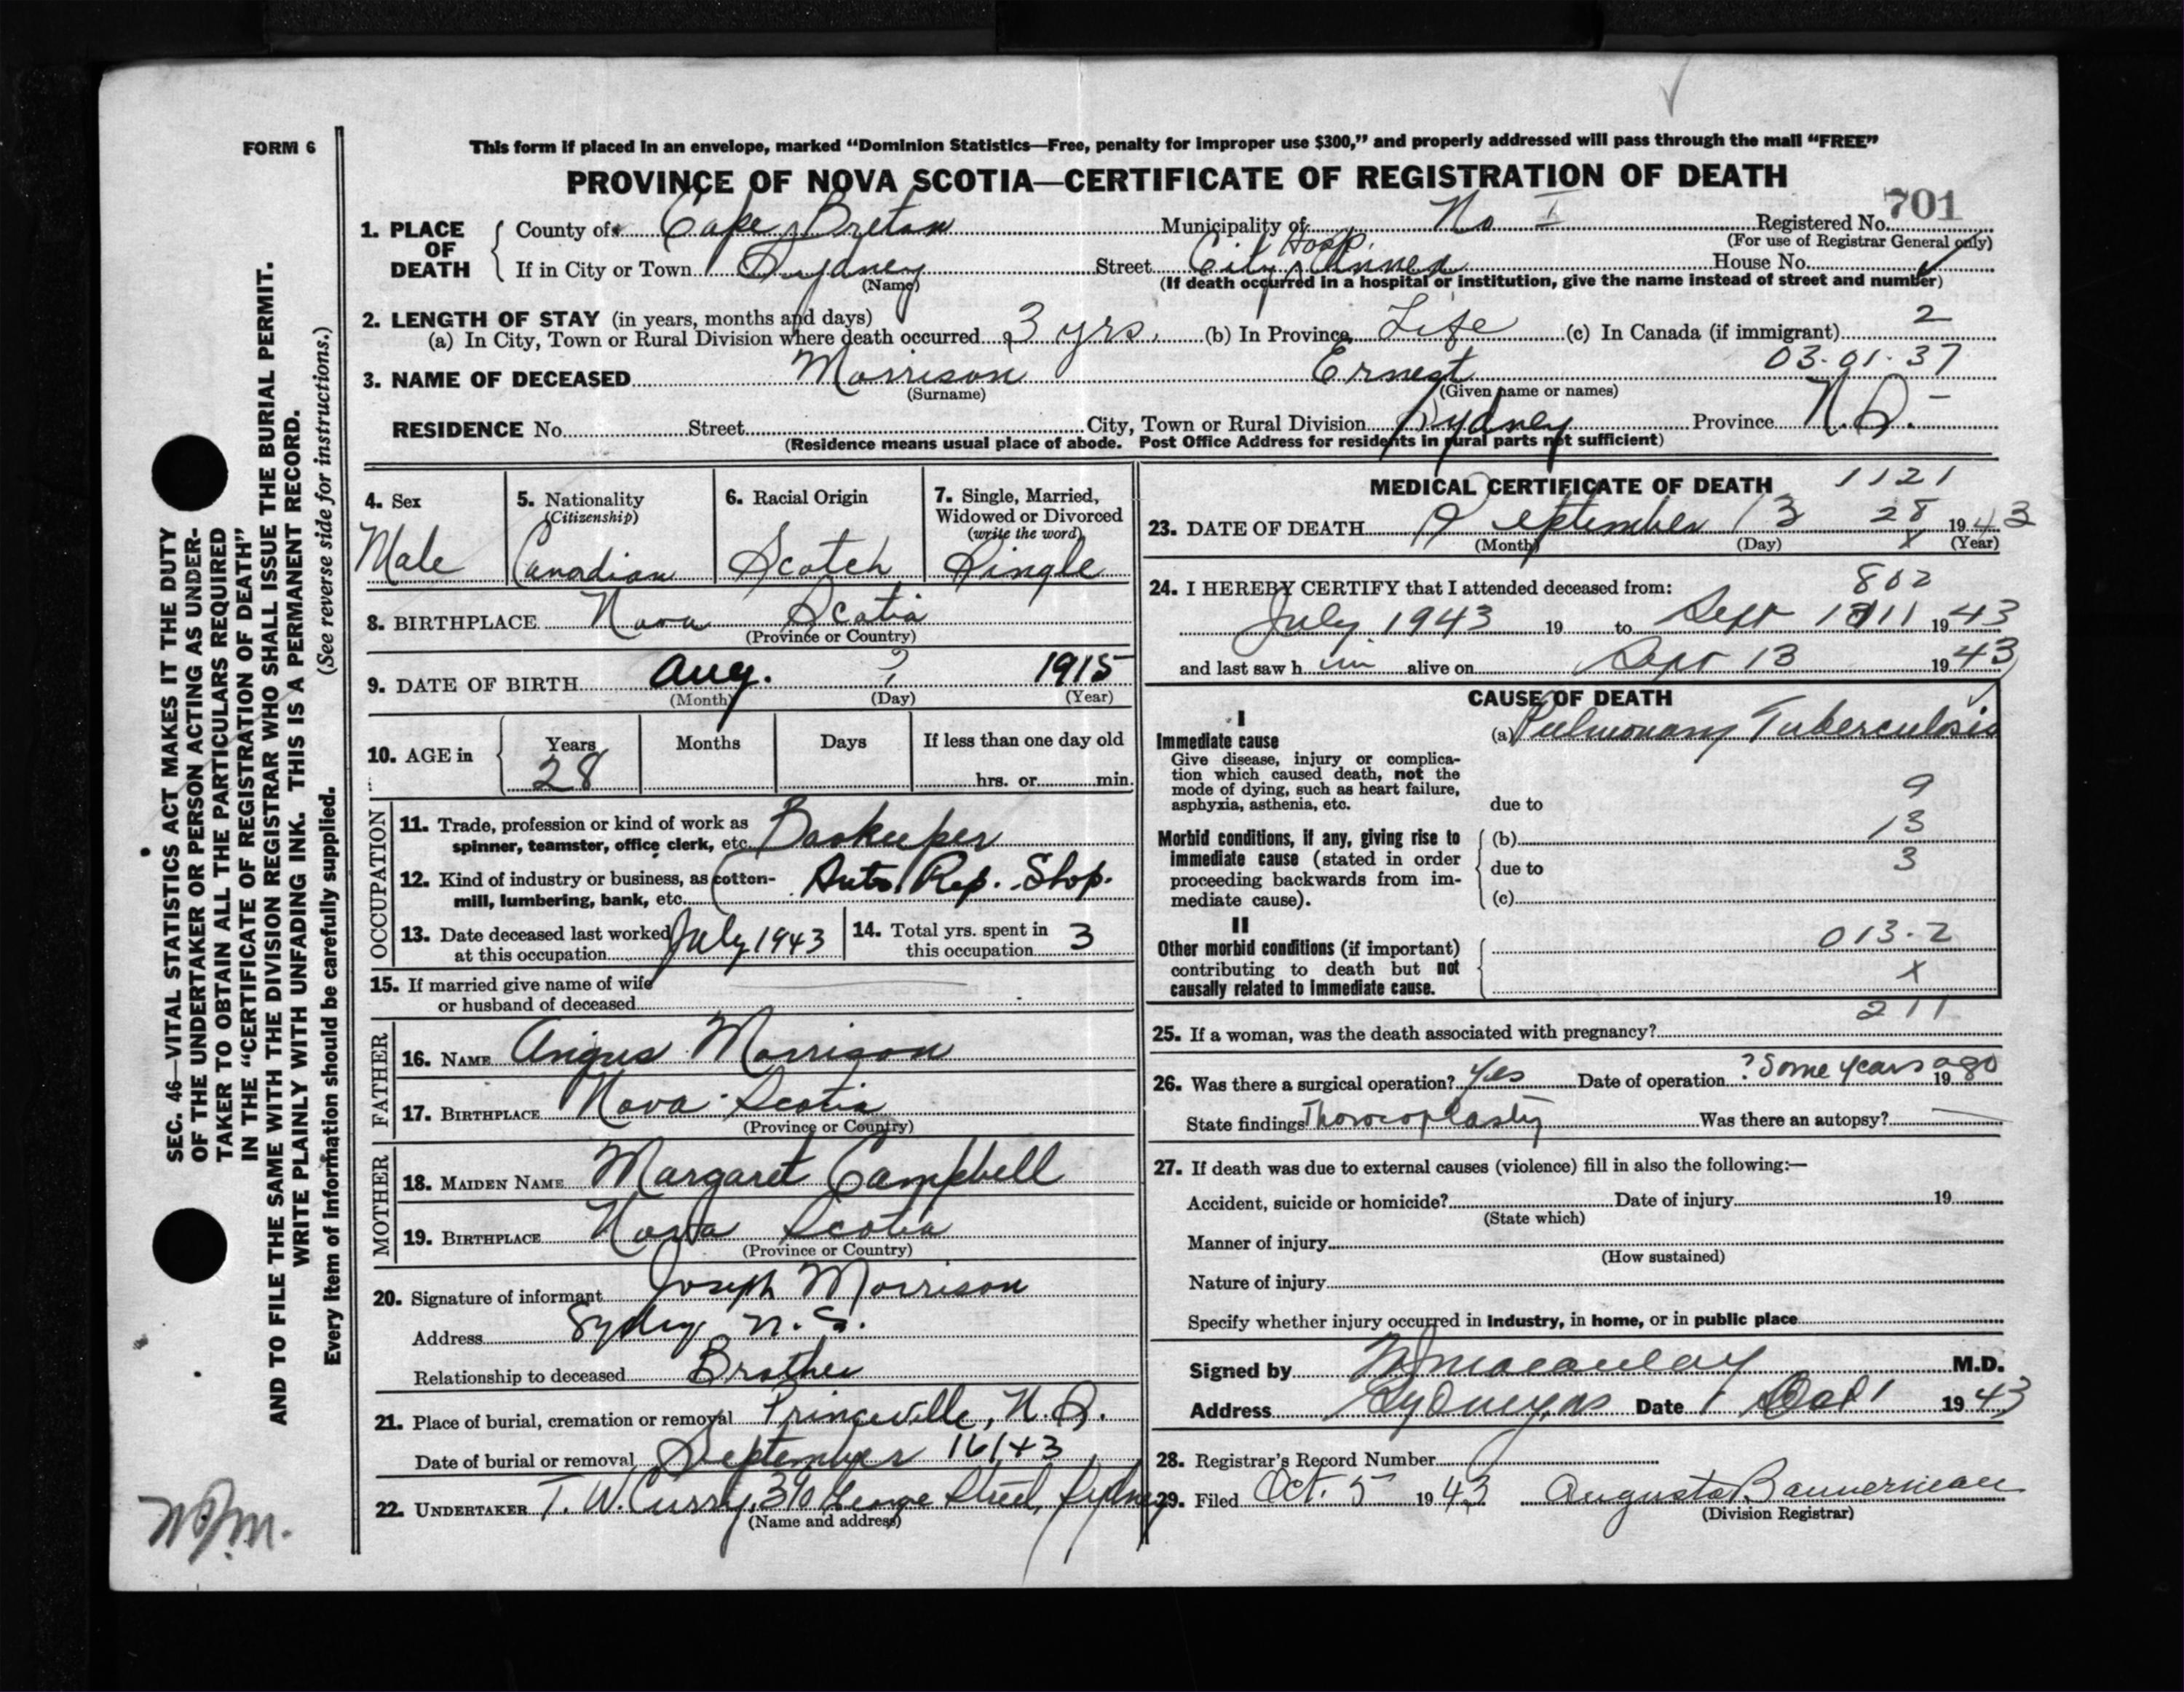 FORM 6
This form if placed in an envelope, marked “Dominion Statistics—Free, penalty for improper use $300,” and properly addressed will pass through the mail “FREE”
PROVINCE OF NOVA SCOTIA—CERTIFICATE OF REGISTRATION OF DEATH
701
1. PLACE OF DEATH
County of Cape Breton Municipality of No I Registered No.
(For use of Registrar General only)
If in City or Town Sydney Street City Hosp. Annex House No.
(Name) (If death occurred in a hospital or institution, give the name instead of street and number)
2. LENGTH OF STAY (in years, months and days)
(a) In City, Town or Rural Division where death occurred 3 yrs. (b) In Province Life (c) In Canada (if immigrant) 2
03-01-37
3. NAME OF DECEASED Morrison Ernest
(Surname) (Given name or names)
RESIDENCE No. Street City, Town or Rural Division Sydney Province N.S.
(Residence means usual place of abode. Post Office Address for residents in rural parts not sufficient)
4. Sex
Male
5. Nationality
(Citizenship)
Canadian
6. Racial Origin
Scotch
7. Single, Married,
Widowed or Divorced
(write the word)
Single
8. BIRTHPLACE Nova Scotia
(Province or Country)
9. DATE OF BIRTH Aug. ? 1915
(Month) (Day) (Year)
10. AGE in
Years Months Days If less than one day old
28 hrs. or min.
OCCUPATION
11. Trade, profession or kind of work as
spinner, teamster, office clerk, etc. Bookeeper
12. Kind of industry or business, as cotton-
mill, lumbering, bank, etc. Auto Rep. Shop.
13. Date deceased last worked
at this occupation July 1943
14. Total yrs. spent in
this occupation 3
15. If married give name of wife
or husband of deceased
FATHER
16. NAME Angus Morrison
17. BIRTHPLACE Nova Scotia
(Province or Country)
MOTHER
18. MAIDEN NAME Margaret Campbell
19. BIRTHPLACE Nova Scotia
(Province or Country)
20. Signature of informant Joseph Morrison
Address Sydney N.S.
Relationship to deceased Brother
21. Place of burial, cremation or removal Princeville, N.S.
Date of burial or removal September 16/43
22. UNDERTAKER T. W. Curry, 390 George Street, Sydney
(Name and address)
MEDICAL CERTIFICATE OF DEATH 1121
23. DATE OF DEATH September 13 28 1943
(Month) (Day) X (Year)
24. I HEREBY CERTIFY that I attended deceased from: 802
July 1943 19 to Sept 11 1943
and last saw him alive on Sept 13 1943
CAUSE OF DEATH
I
Immediate cause
Give disease, injury or complica-
tion which caused death, not the
mode of dying, such as heart failure,
asphyxia, asthenia, etc.
(a) Pulmonary Tuberculosis
9
due to
Morbid conditions, if any, giving rise to
immediate cause (stated in order
proceeding backwards from im-
mediate cause).
(b) 13
due to 3
(c)
II
Other morbid conditions (if important)
contributing to death but not
causally related to immediate cause.
013-2
X
211
25. If a woman, was the death associated with pregnancy?
26. Was there a surgical operation? Yes Date of operation ? Some years ago 19
State findings Thorocoplasty Was there an autopsy?
27. If death was due to external causes (violence) fill in also the following:—
Accident, suicide or homicide? Date of injury 19
(State which)
Manner of injury
(How sustained)
Nature of injury
Specify whether injury occurred in industry, in home, or in public place
Signed by Macaulay M.D.
Address Sydney, NS Date Oct 1 1943
28. Registrar's Record Number
29. Filed Oct. 5 1943 Augusta Bannerman
(Division Registrar)
SEC. 46—VITAL STATISTICS ACT MAKES IT THE DUTY
OF THE UNDERTAKER OR PERSON ACTING AS UNDER-
TAKER TO OBTAIN ALL THE PARTICULARS REQUIRED
IN THE “CERTIFICATE OF REGISTRATION OF DEATH”
AND TO FILE THE SAME WITH THE DIVISION REGISTRAR WHO SHALL ISSUE THE BURIAL PERMIT.
WRITE PLAINLY WITH UNFADING INK. THIS IS A PERMANENT RECORD.
Every item of information should be carefully supplied. (See reverse side for instructions.)